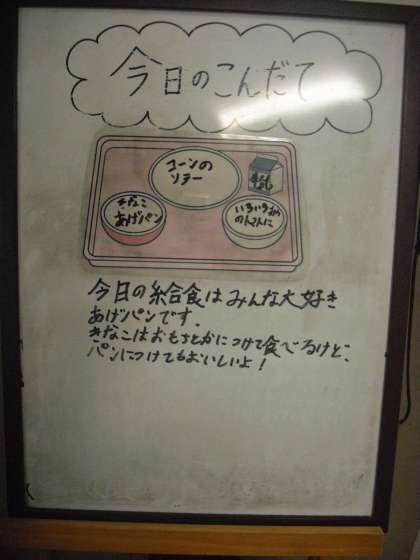 今日のこんだて
コーンの
ソテー
牛乳
きなこ
あげパン
今日の給食はみんな大好き
あげパンです。
きなこはおもちとかにつけて食べるけど、
パンにつけてもおいしいよ!